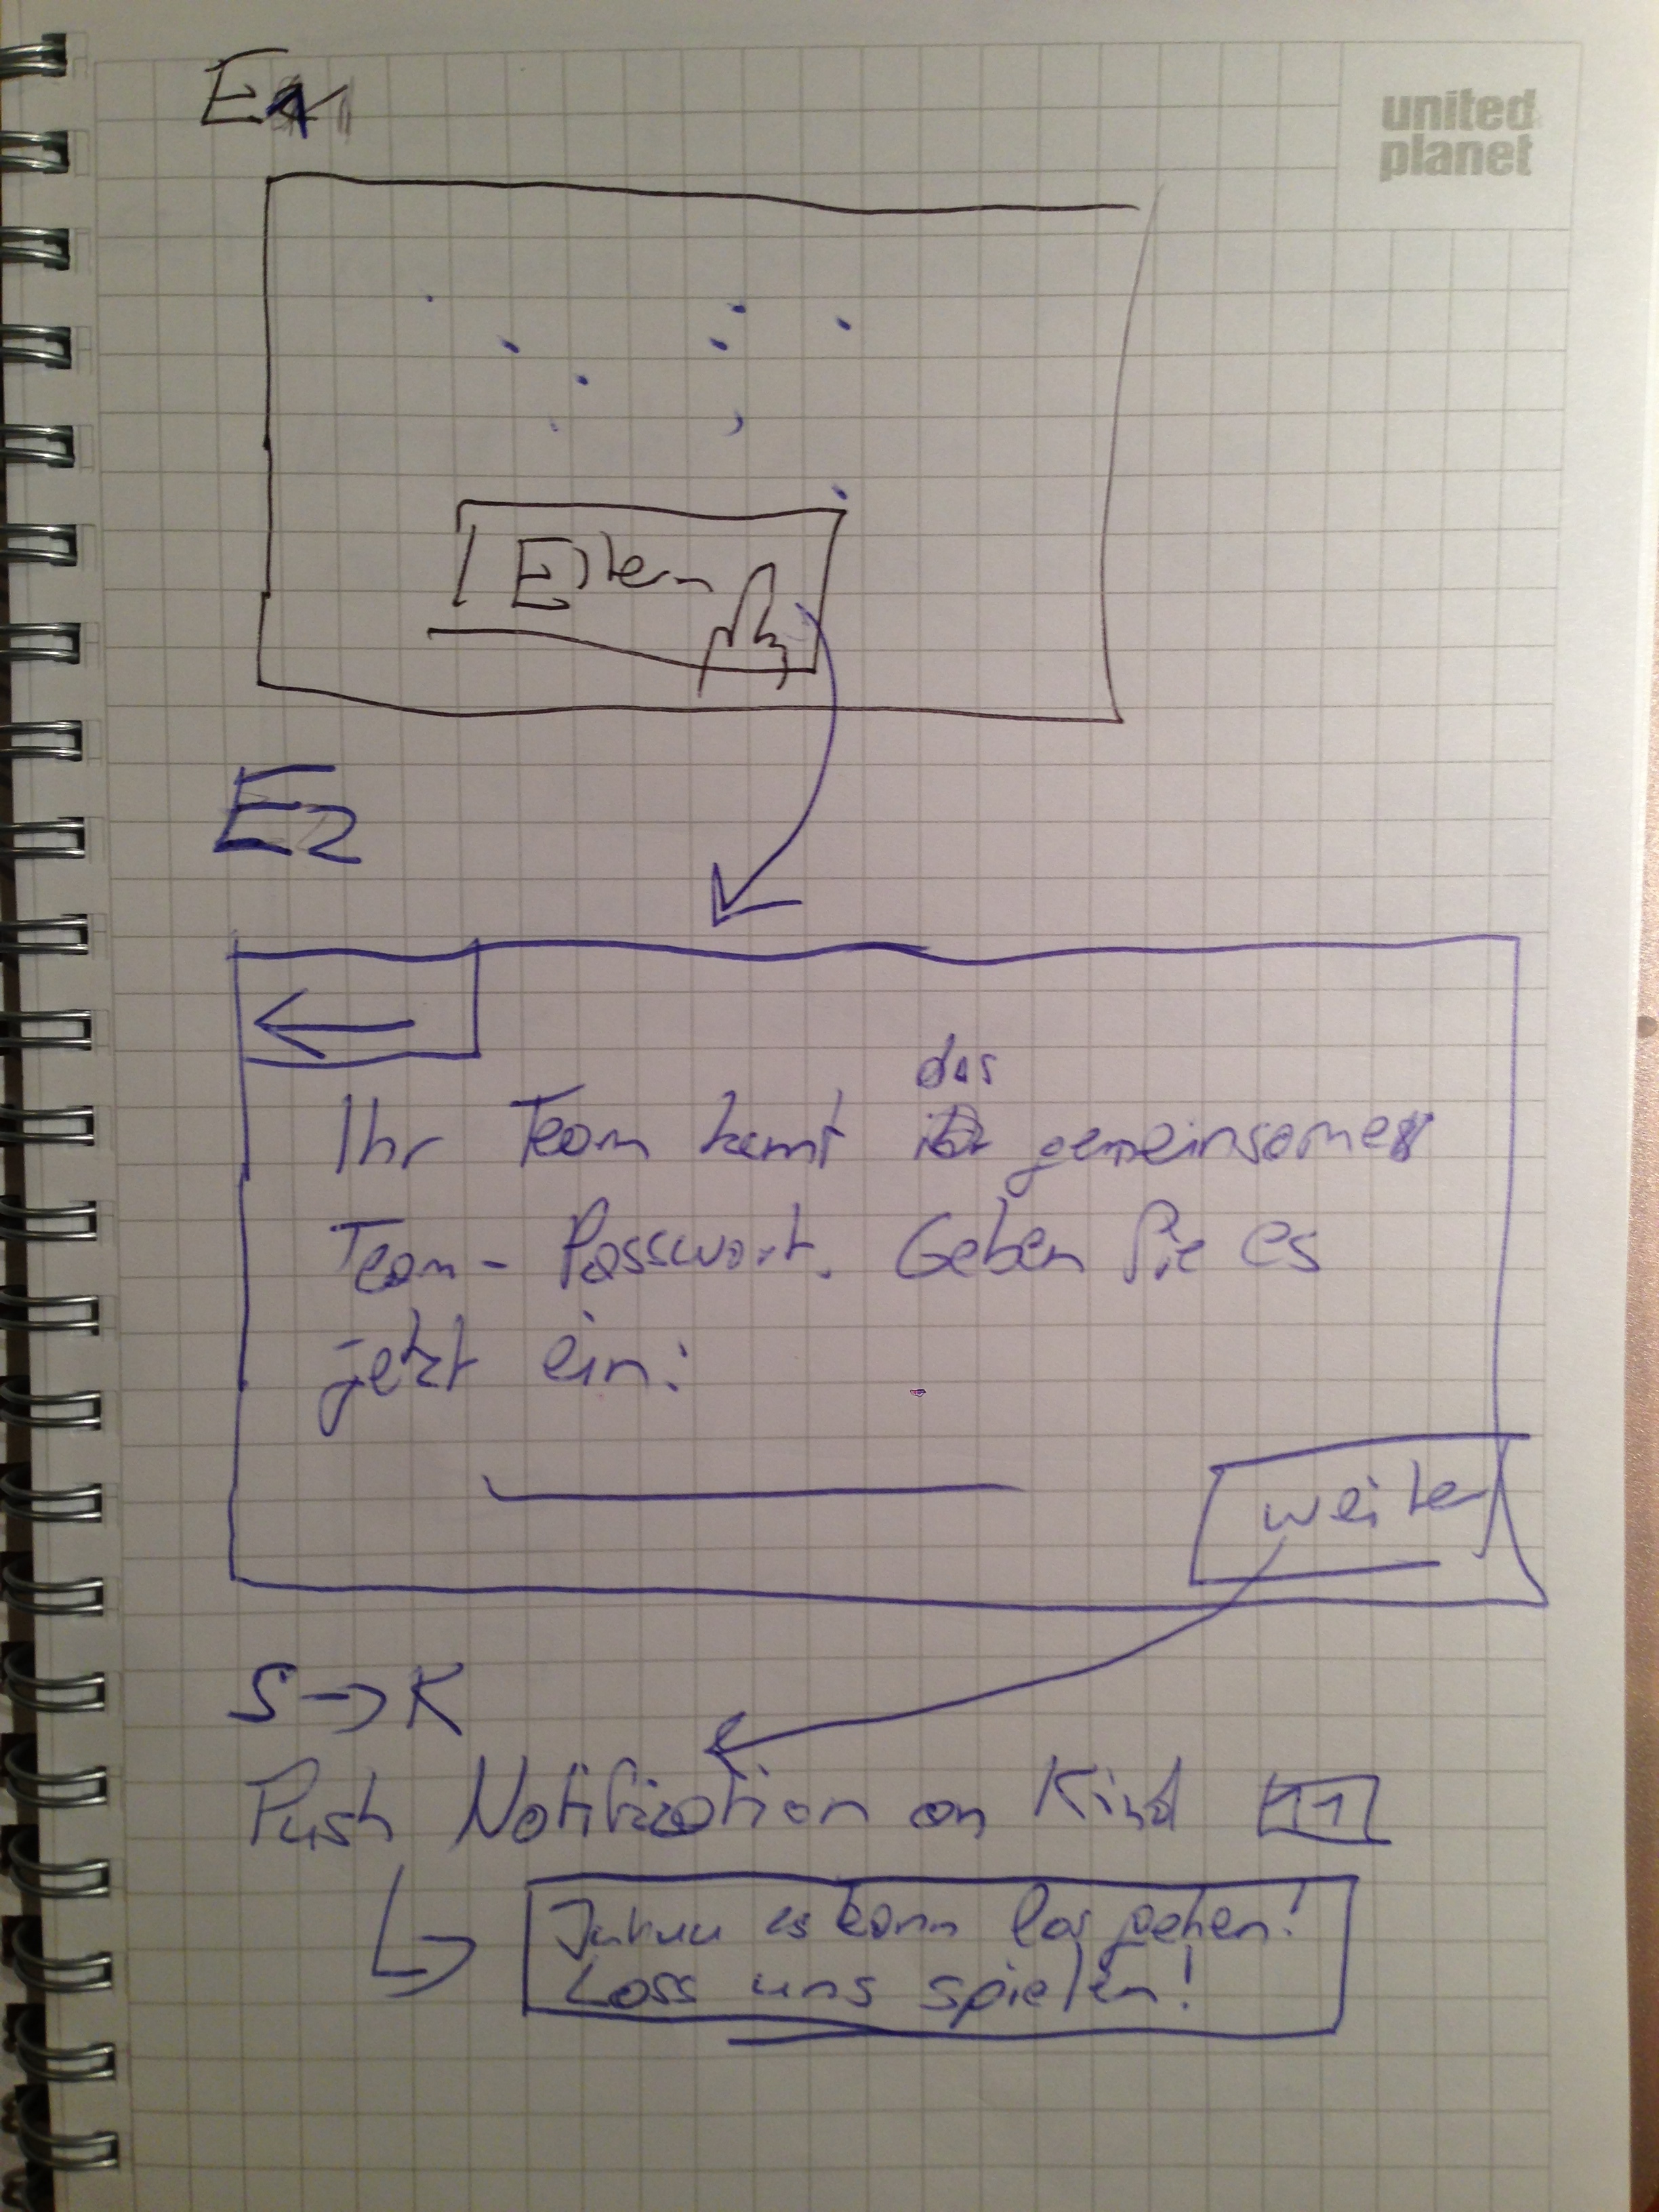 E1
united
planet
Eltern
E2
das
Ihr Team kennt gemeinsames
Team-Passwort. Geben Sie es
jetzt ein:
weiter
S → K
Push Notification an Kind 11
es kann los gehen!
Lass uns spielen!